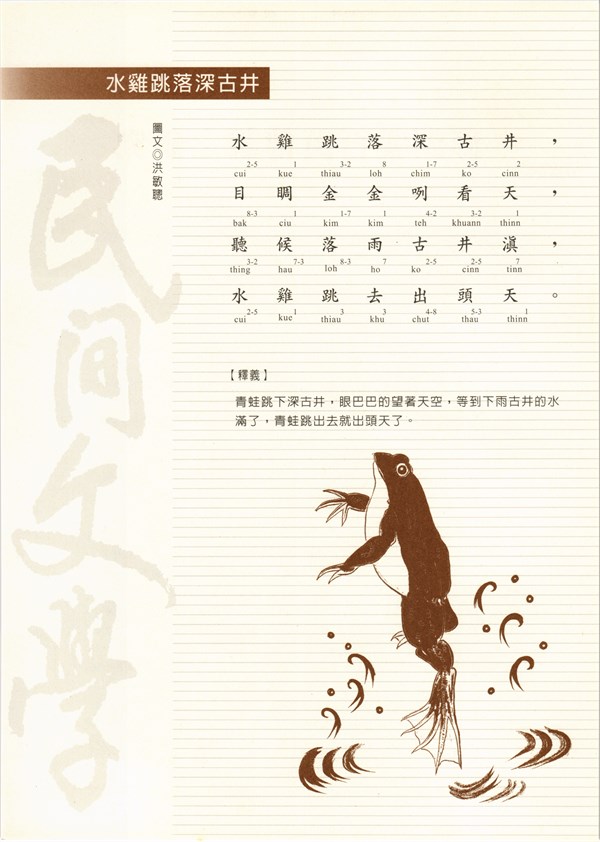 水雞跳落深古井
圖文◎洪敏聰
民間文學
水雞跳落深古井，
2-5 1 3-2 8 1-7 2-5 2
cui kue thiau loh chim ko cinn
目睭金金咧看天，
8-3 1 1-7 1 4-2 3-2 1
bak ciu kim kim teh khuann thinn
聽候落雨古井滇，
3-2 7-3 8-3 7 2-5 2-5 7
thing hau loh ho ko cinn tinn
水雞跳去出頭天。
2-5 1 3 3 4-8 5-3 1
cui kue thiau khu chut thau thinn
【釋義】
青蛙跳下深古井，眼巴巴的望著天空，等到下雨古井的水
滿了，青蛙跳出去就出頭天了。